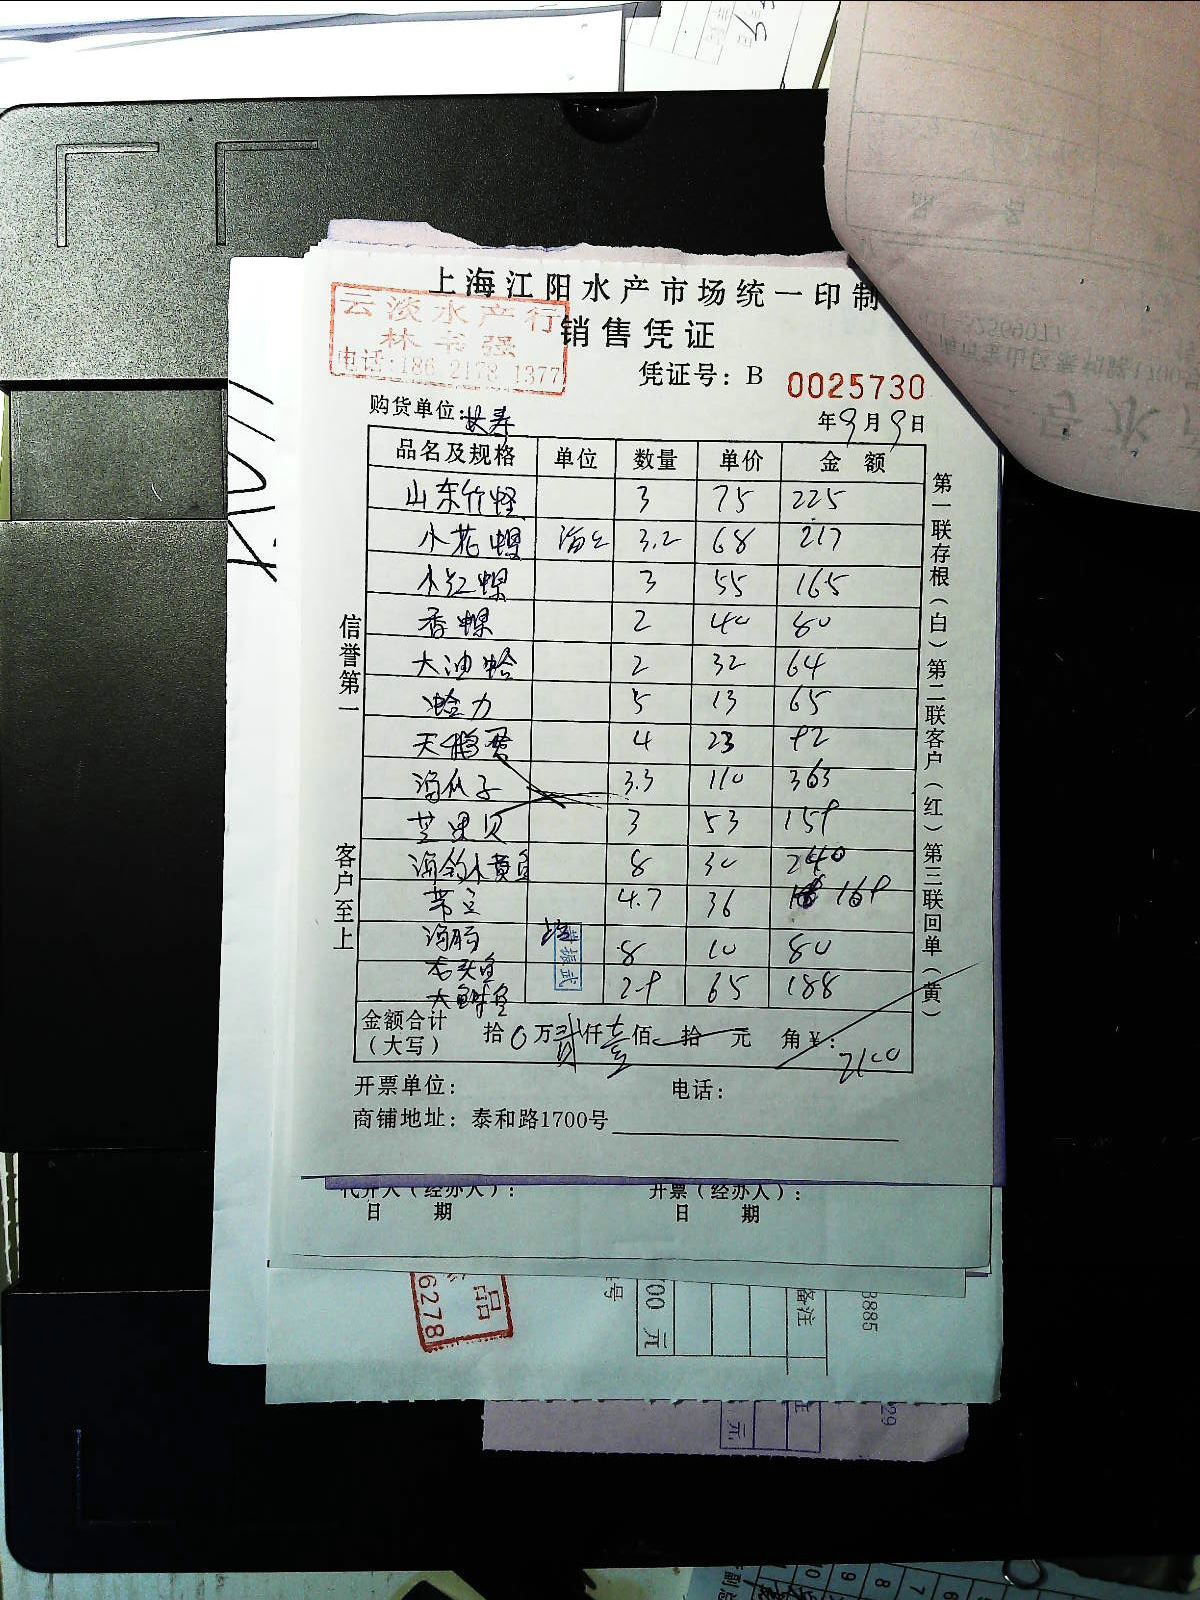 上海江阳水产市场统一印制
云淡水产行
林书强
电话:186 2178 1377
销售凭证
凭证号：B 0025730
购货单位：长寿 年9月9日
品名及规格 单位 数量 单价 金额
山东竹蛏 3 75 225
小花螺 3.2 68 217
小红螺 3 55 165
香螺 2 40 80
大油蛤 2 32 64
蛤力 5 13 65
天鹅蛋 4 23 92
海瓜子 3.3 110 363
芒果贝 3 53 159
海钓小黄鱼 8 30 240
4.7 36 169
海肠 8 10 80
老头鱼
2.9 65 188
金额合计（大写） 拾0万贰仟壹佰 拾 元 角￥：2100
开票单位： 电话：
商铺地址：泰和路1700号
信誉第一
客户至上
第一联存根（白）第二联客户（红）第三联回单（黄）
代开人（经办人）： 开票（经办人）：
日 期 日 期
品
6278
号
00 元
备注
3885
元
29